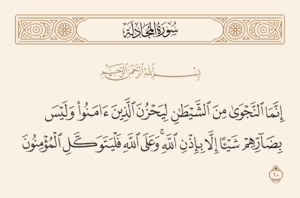 سُورَةُ المُجَادلَةِ
بِسْمِ اللَّهِ الرَّحْمَٰنِ الرَّحِيمِ
إِنَّمَا ٱلنَّجْوَىٰ مِنَ ٱلشَّيْطَٰنِ لِيَحْزُنَ ٱلَّذِينَ ءَامَنُوا۟ وَلَيْسَ
بِضَآرِّهِمْ شَيْـًٔا إِلَّا بِإِذْنِ ٱللَّهِ ۚ وَعَلَى ٱللَّهِ فَلْيَتَوَكَّلِ ٱلْمُؤْمِنُونَ
١٠